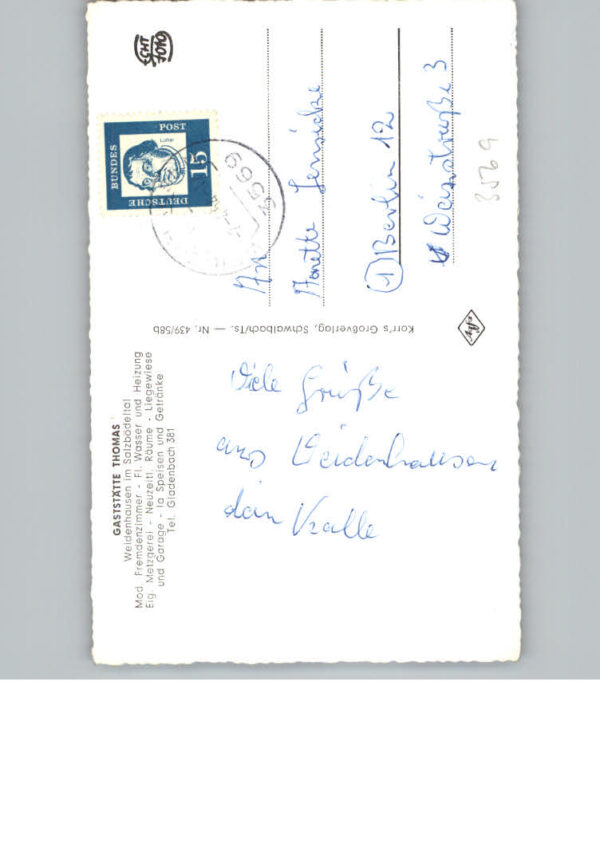 GASTSTÄTTE THOMAS
Weidenhausen im Salzbödeltal
Mod. Fremdenzimmer - Fl. Wasser und Heizung
Eig. Metzgerei - Neuzeitl. Räume - Liegewiese
und Garage - Ia Speisen und Getränke
Tel. Gladenbach 381
Viele Grüße
aus Weidenhausen
dein Kalle
Korr's Großverlag, Schwalbach/Ts. — Nr. 439/58b
ECHT
FOTO
DEUTSCHE
BUNDES
POST
15
Luther
3569
An
(1) Berlin 12
Weisestraße 3
35769